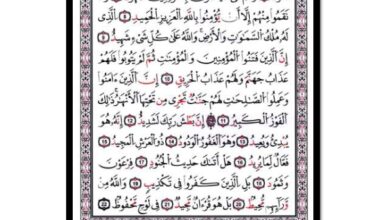 نَقَمُوا۟ مِنْهُمْ إِلَّآ أَن يُؤْمِنُوا۟ بِٱللَّهِ ٱلْعَزِيزِ ٱلْحَمِيدِ ٨ ٱلَّذِى
لَهُۥ مُلْكُ ٱلسَّمَٰوَٰتِ وَٱلْأَرْضِ وَٱللَّهُ عَلَىٰ كُلِّ شَىْءٍ شَهِيدٌ ٩
إِنَّ ٱلَّذِينَ فَتَنُوا۟ ٱلْمُؤْمِنِينَ وَٱلْمُؤْمِنَٰتِ ثُمَّ لَمْ يَتُوبُوا۟ فَلَهُمْ
عَذَابُ جَهَنَّمَ وَلَهُمْ عَذَابُ ٱلْحَرِيقِ ١٠ إِنَّ ٱلَّذِينَ ءَامَنُوا۟
وَعَمِلُوا۟ ٱلصَّٰلِحَٰتِ لَهُمْ جَنَّٰتٌ تَجْرِى مِن تَحْتِهَا ٱلْأَنْهَٰرُ ذَٰلِكَ
ٱلْفَوْزُ ٱلْكَبِيرُ ١١ إِنَّ بَطْشَ رَبِّكَ لَشَدِيدٌ ١٢ إِنَّهُۥ هُوَ
يُبْدِئُ وَيُعِيدُ ١٣ وَهُوَ ٱلْغَفُورُ ٱلْوَدُودُ ١٤ ذُو ٱلْعَرْشِ ٱلْمَجِيدُ ١٥
فَعَّالٌ لِّمَا يُرِيدُ ١٦ هَلْ أَتَىٰكَ حَدِيثُ ٱلْجُنُودِ ١٧ فِرْعَوْنَ
وَثَمُودَ ١٨ بَلِ ٱلَّذِينَ كَفَرُوا۟ فِى تَكْذِيبٍ ١٩ وَٱللَّهُ مِن
وَرَآئِهِم مُّحِيطٌ ٢٠ بَلْ هُوَ قُرْءَانٌ مَّجِيدٌ ٢١ فِى لَوْحٍ مَّحْفُوظٍ ٢٢